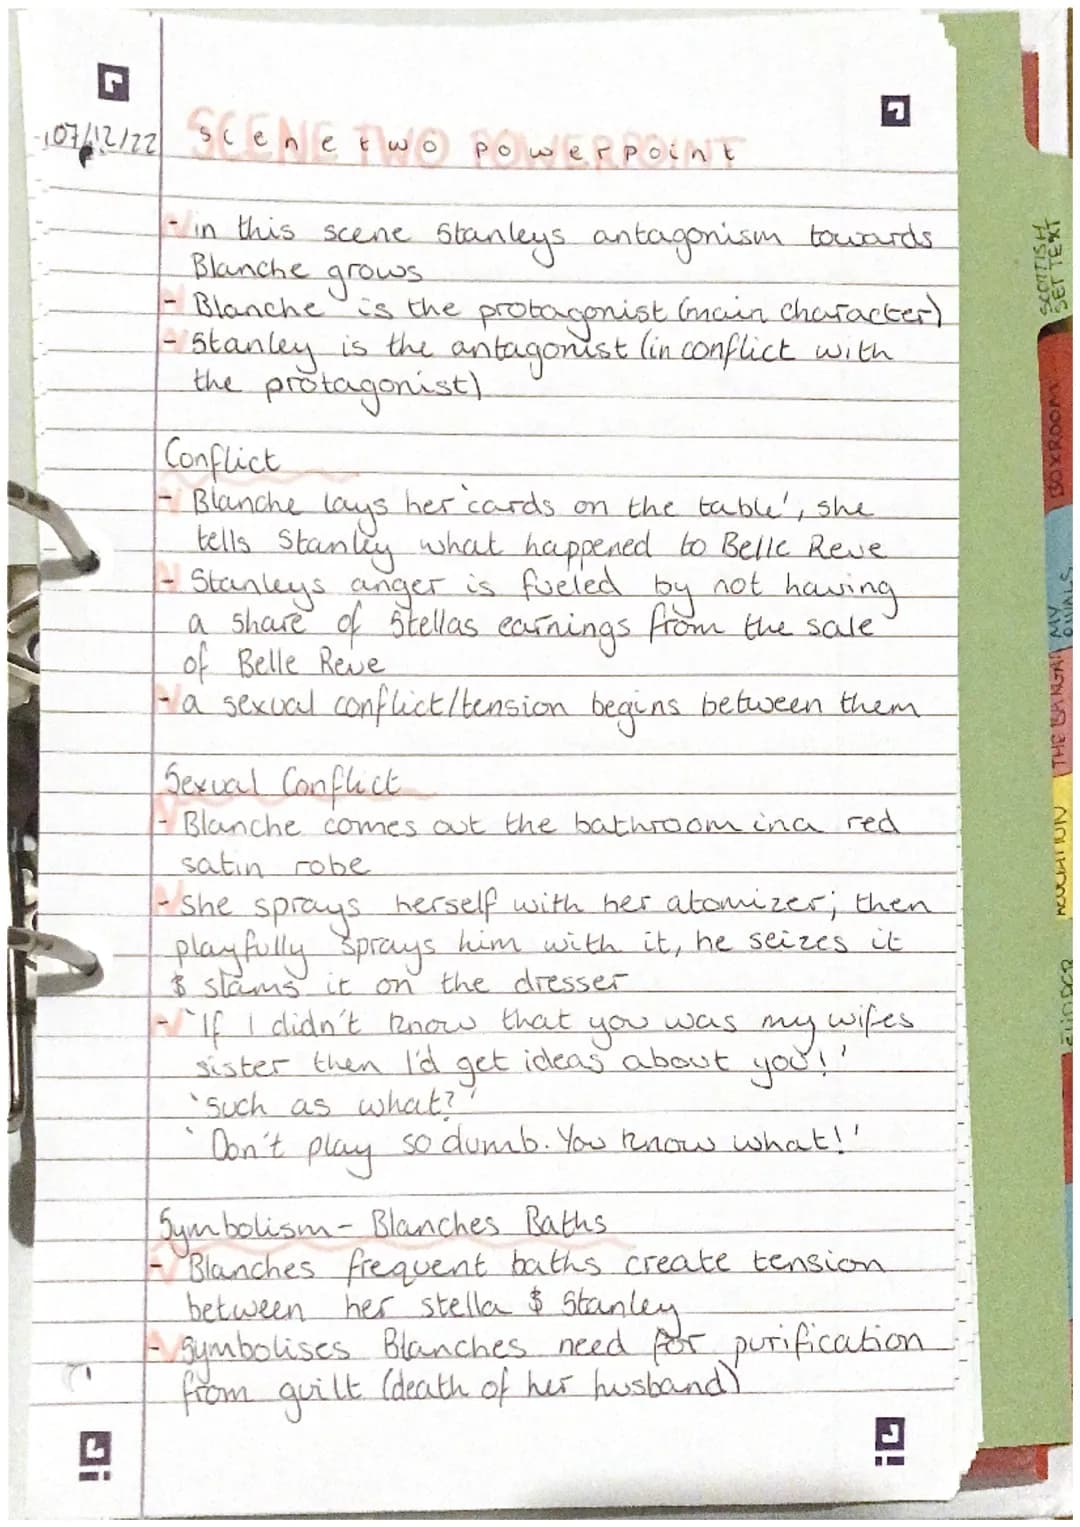 07/12/22
SCENE TWO POWERPOINT
scene two powerpoint
- in this scene Stanleys antagonism towards
Blanche grows
- Blanche is the protagonist (main character)
- Stanley is the antagonist (in conflict with
the protagonist)
Conflict
- Blanche lays her 'cards on the table', she
tells Stanley what happened to Belle Reve
- Stanleys anger is fueled by not having
a share of Stellas earnings from the sale
of Belle Reve
- a sexual conflict/tension begins between them
Sexual Conflict
- Blanche comes out the bathroom in a red
satin robe
- she sprays herself with her atomizer; then
playfully sprays him with it, he seizes it
$ slams it on the dresser
- 'If I didn't know that you was my wifes
sister then I'd get ideas about you!'
'such as what?'
'Don't play so dumb. You know what!'
Symbolism - Blanches Baths
- Blanches frequent baths create tension
between her stella $ Stanley
- Symbolises Blanches need for purification
from guilt (death of her husband)
SCOTTISH
SET TEXT
BOXROOM
MY
RIVALS
THE BARGAI